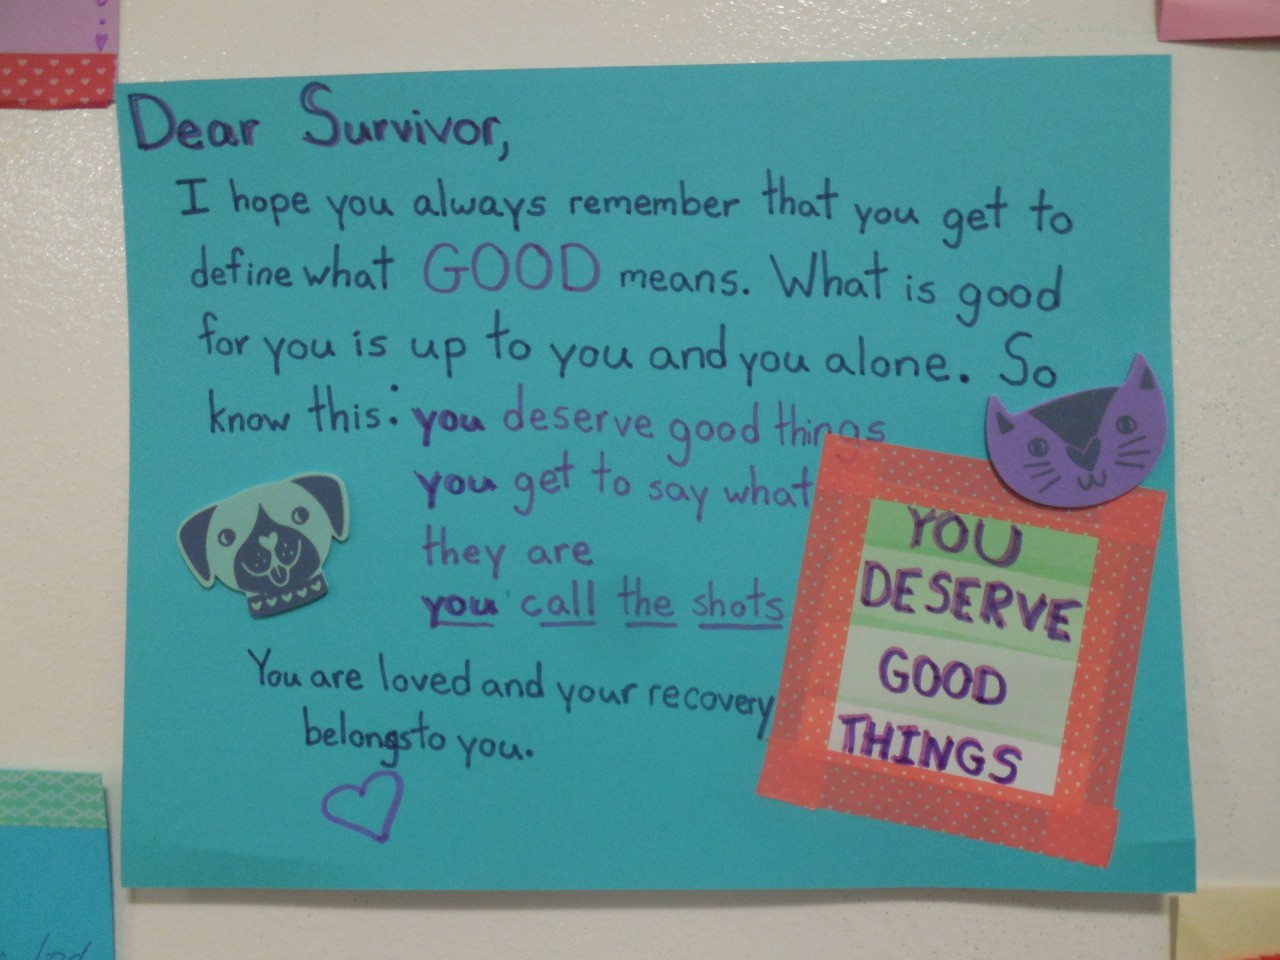 Dear Survivor,
I hope you always remember that you get to
define what GOOD means. What is good
for you is up to you and you alone. So
know this: you deserve good things
you get to say what
they are
you call the shots
You are loved and your recovery
belongs to you.
YOU
DESERVE
GOOD
THINGS